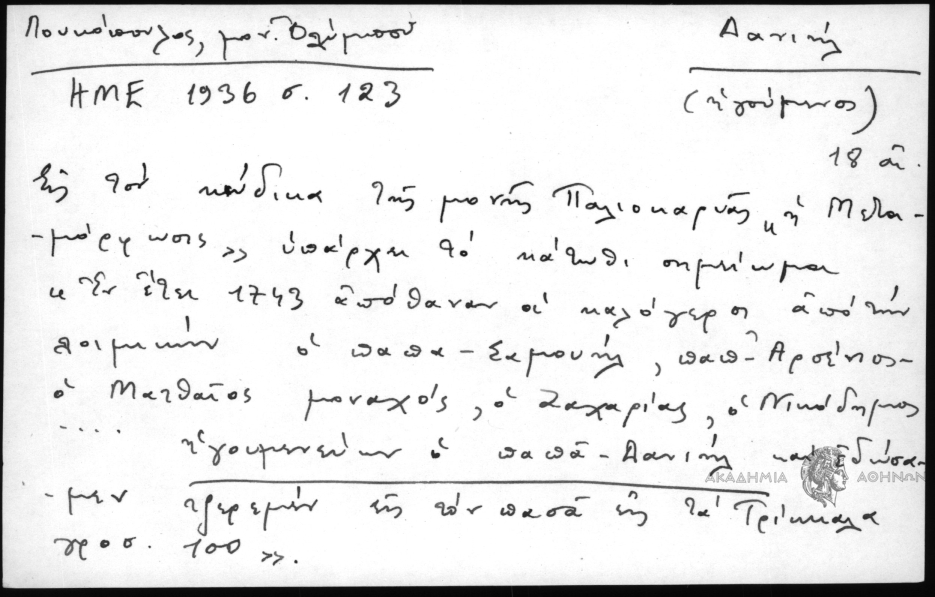 Λουκόπουλος, μον. Ὀλύμπου
Δανιήλ
ΗΜΕ 1936 σ. 123
(ἡγούμενος)
18 αἰ.
Εἰς τόν κώδικα τῆς μονῆς Παλιοκαρυᾶς "ἡ Μετα-
-μόρφωσις» ὑπάρχει τό κάτωθι σημείωμα
« Ἐν ἔτει 1743 ἀπόθαναν οἱ καλόγεροι ἀπό τήν
λοιμικήν ὁ παπα-Σαμουήλ, παπ-Ἀρσένιος-
ὁ Ματθαῖος μοναχός, ὁ Ζαχαρίας, ὁ Νικόδημος
.... ἡγουμενεύων ὁ παπᾶ-Δανιήλ καί ἐδώσα-
-μεν τζερεμέν εἰς τόν πασᾶ εἰς τά Τρίκκαλα
γροσ. 100 ».
ΑΚΑΔΗΜΙΑ ΑΘΗΝΩΝ